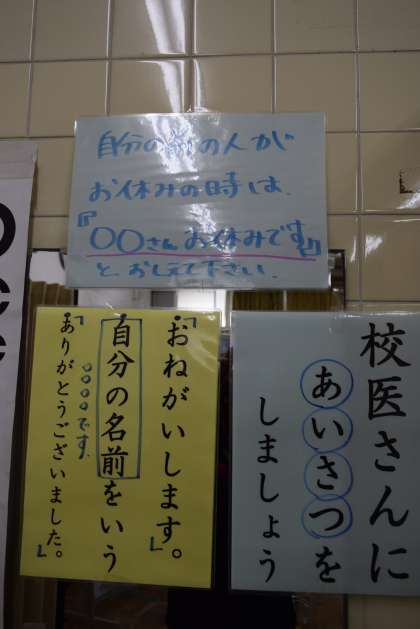 自分の前の人が
お休みの時は、
『〇〇さんお休みです』
と、おしえて下さい。
校医さんに
あいさつを
しましょう
「おねがいします。」
自分の名前をいう
〇〇〇〇です。
「ありがとうございました。」